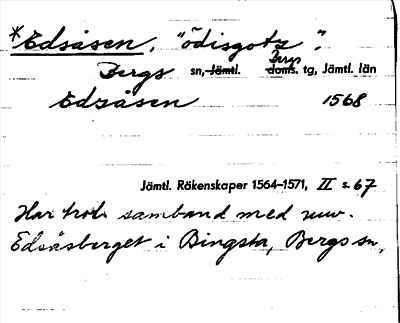 *Edsåsen, "ödisgotz".
Bergs sn, Jämtl. Bergs doms. tg, Jämtl. län
Edzåsen 1568
Jämtl. Räkenskaper 1564–1571, II s. 67
Har trol. samband med nuv.
Edsåsberget i Bingsta, Bergs sn,